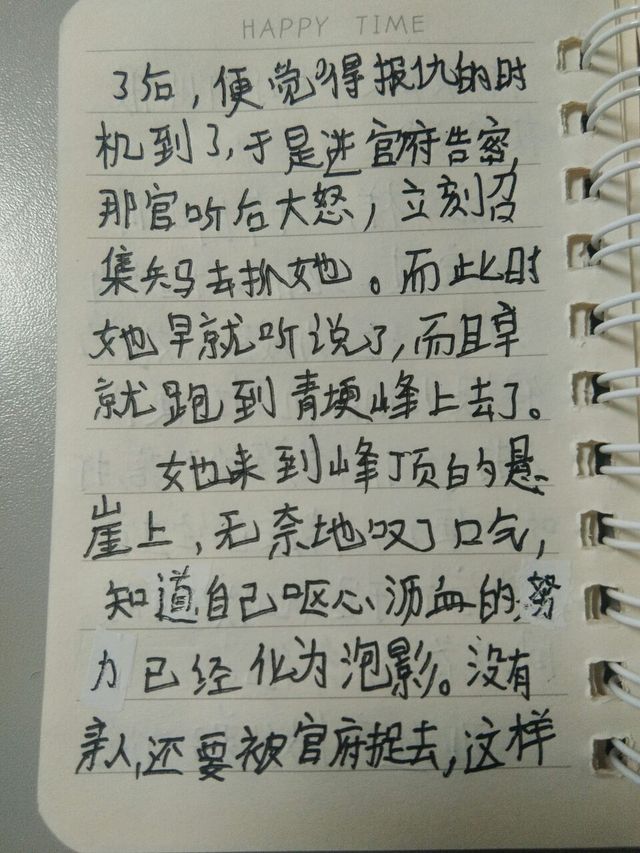 HAPPY TIME
了后，便觉得报仇的时
机到了，于是进官府告密，
那官听后大怒，立刻召
集兵马去抓她。而此时
她早就听说了，而且早
就跑到青埂峰上去了。
她来到峰顶的悬
崖上，无奈地叹了口气，
知道自己呕心沥血的努
力已经化为泡影。没有
亲人，还要被官府捉去，这样